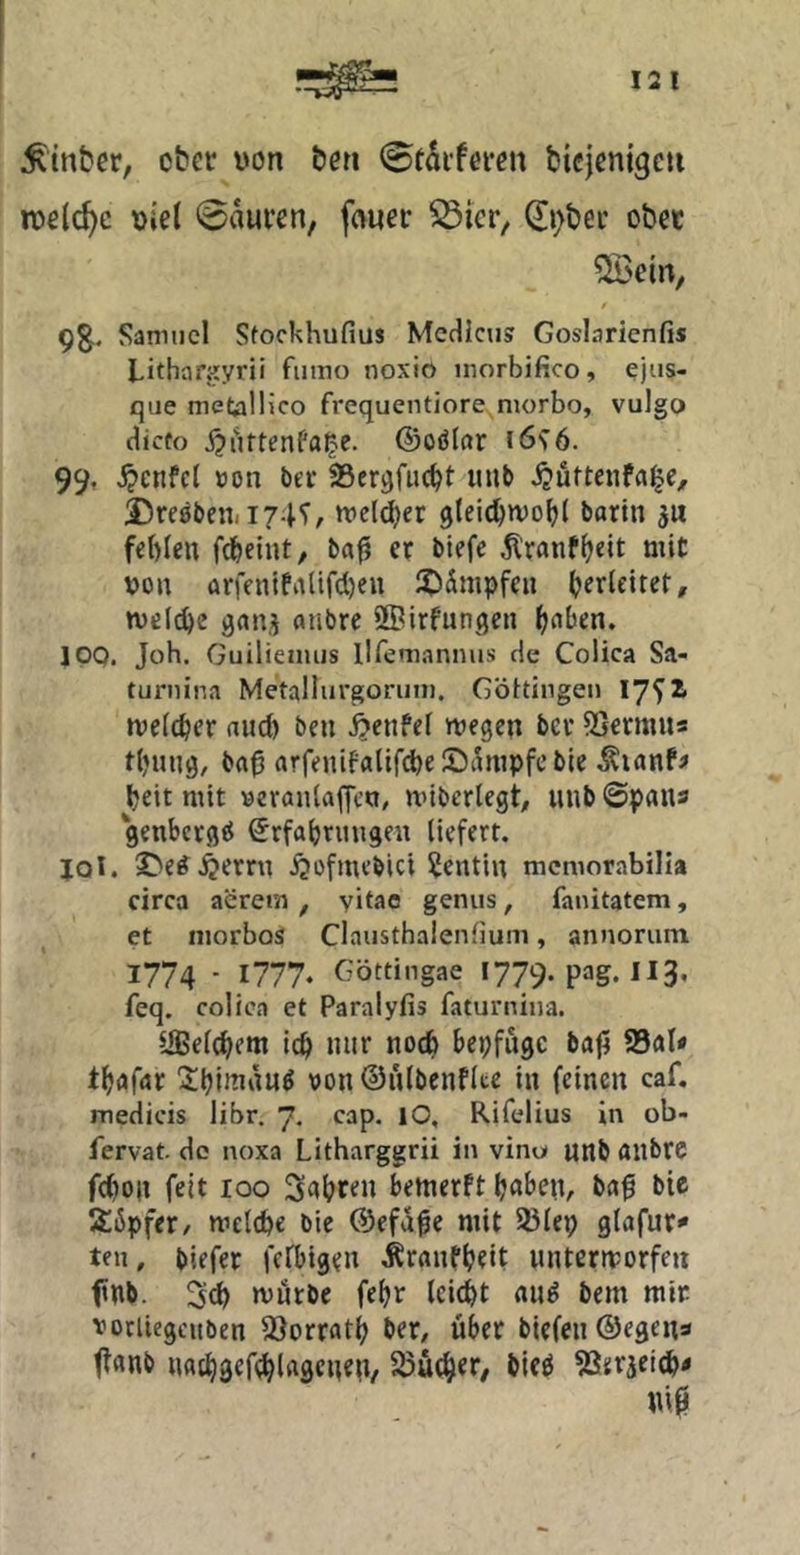 121
Kinder, oder von den Stärkeren diejenigen
welche viel Säuren, sauer Bier, Cyder oder
Wein,
98. Samuel Stockhuſius Medicus Goslarienſis
Lithargyrii fumo noxio morbifico, ejus-
que metallico frequentiore morbo, vulgo
dicto Hüttenkatze. Goslar 1656.
99. Henkel von der Bergsucht und Hüttenkatze,
Dresden. 1745, welcher gleichwohl darin zu
fehlen scheint, daß er diese Krankheit mit
von arsenikalischen Dämpfen herleitet,
welche ganz andre Wirkungen haben.
100. Joh. Guiliemus Ilſemannus de Colica Sa-
turnina Metallurgorum. Göttingen 1752
welcher auch den Henkel wegen der Vermu-
thung, daß arsenikalische Dämpfe die Krank-
heit mit veranlassen, widerlegt, und Span-
genbergs Erfahrungen liefert.
101. Des Herrn Hofmedici Lentin memorabilia
circa aërem, vitae genus, ſanitatem,
et morbos Clausthalenſium, annorum
1774 - 1777. Göttingae 1779. pag. 113.
ſeq. colica et Paralyſis ſaturnina.
Welchem ich nur noch beyfüge daß Bal-
thasar Thimäus von Güldenklee in seinen caſ.
medicis libr. 7. cap. 10, Riſelius in ob-
ſervat. de noxa Litharggrii in vino und andre
schon seit 100 Jahren bemerkt haben, daß die
Töpfer, welche die Gefäße mit Bley glasur-
ten, dieser selbigen Krankheit unterworfen
sind. Ich würde sehr leicht aus dem mir
vorliegenden Vorrath der, über diesen Gegen-
stand nachgeschlagenen, Bücher, dies Verzeich-
niß